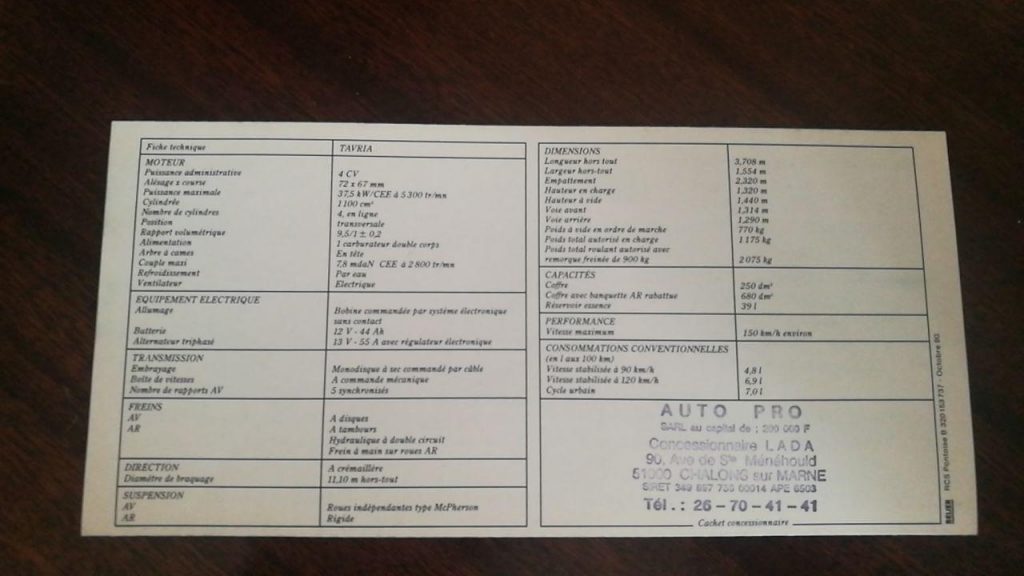 Fiche technique TAVRIA
MOTEUR
Puissance administrative 4 CV
Alésage x course 72 x 67 mm
Puissance maximale 37,5 kW/CEE à 5300 tr/mn
Cylindrée 1100 cm³
Nombre de cylindres 4, en ligne
Position transversale
Rapport volumétrique 9,5/1 ± 0,2
Alimentation 1 carburateur double corps
Arbre à cames En tête
Couple maxi 7,8 mdaN CEE à 2800 tr/mn
Refroidissement Par eau
Ventilateur Electrique
EQUIPEMENT ELECTRIQUE
Allumage Bobine commandée par système électronique
sans contact
Batterie 12 V - 44 Ah
Alternateur triphasé 13 V - 55 A avec régulateur électronique
TRANSMISSION
Embrayage Monodisque à sec commandé par câble
Boîte de vitesses A commande mécanique
Nombre de rapports AV 5 synchronisés
FREINS
AV A disques
AR A tambours
Hydraulique à double circuit
Frein à main sur roues AR
DIRECTION A crémaillère
Diamètre de braquage 11,10 m hors-tout
SUSPENSION
AV Roues indépendantes type McPherson
AR Rigide
DIMENSIONS
Longueur hors tout 3,708 m
Largeur hors-tout 1,554 m
Empattement 2,320 m
Hauteur en charge 1,320 m
Hauteur à vide 1,440 m
Voie avant 1,314 m
Voie arrière 1,290 m
Poids à vide en ordre de marche 770 kg
Poids total autorisé en charge 1175 kg
Poids total roulant autorisé avec
remorque freinée de 900 kg 2075 kg
CAPACITÉS
Coffre 250 dm³
Coffre avec banquette AR rabattue 680 dm³
Réservoir essence 39 l
PERFORMANCE
Vitesse maximum 150 km/h environ
CONSOMMATIONS CONVENTIONNELLES
(en l aux 100 km)
Vitesse stabilisée à 90 km/h 4,8 l
Vitesse stabilisée à 120 km/h 6,9 l
Cycle urbain 7,0 l
AUTO PRO
SARL au capital de : 200 000 F
Concessionnaire LADA
90, Ave de Ste Ménéhould
51000 CHALONS sur MARNE
SIRET 349 897 00014 APE 6503
Tél. : 26 - 70 - 41 - 41
Cachet concessionnaire
BELIER RCS Pontoise B 320153737 - Octobre